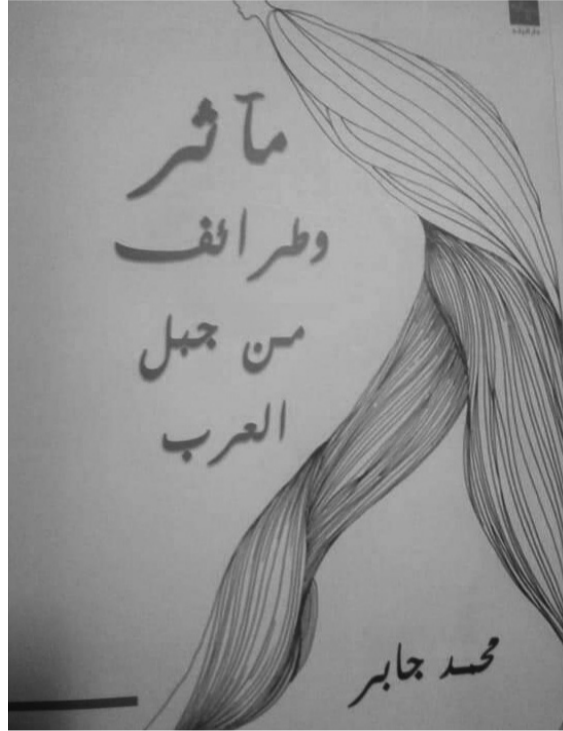 مآثر
وطرائف
من جبل
العرب
محمد جابر